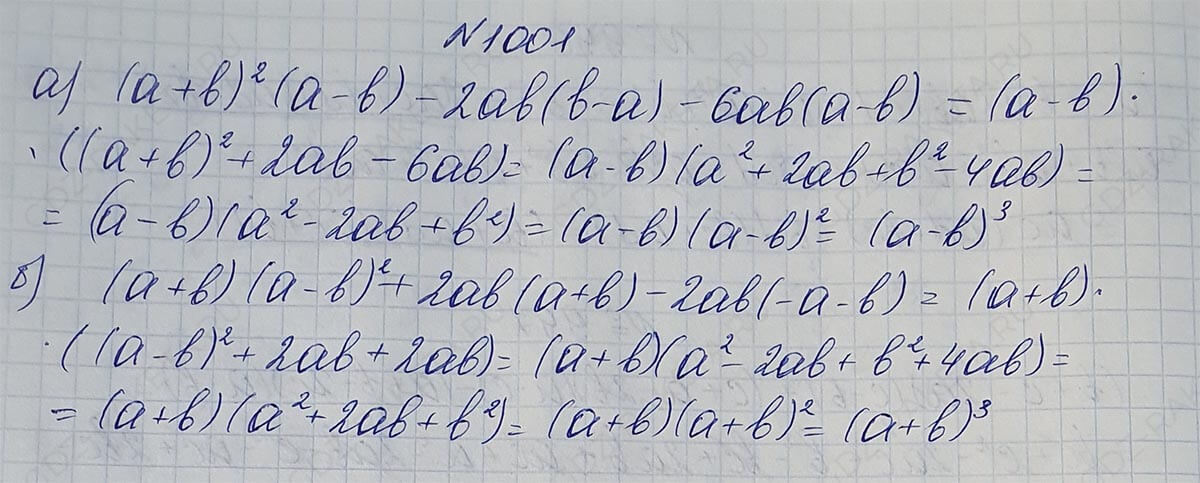 N1001
а) (a+b)²(a-b)-2ab(b-a)-6ab(a-b) = (a-b)·
·((a+b)²+2ab-6ab)= (a-b)(a²+2ab+b²-4ab) =
= (a-b)(a²-2ab+b²)= (a-b)(a-b)²= (a-b)³
б) (a+b)(a-b)²+2ab(a+b)-2ab(-a-b)= (a+b)·
·((a-b)²+2ab+2ab)= (a+b)(a²-2ab+b²+4ab)=
= (a+b)(a²+2ab+b²)= (a+b)(a+b)²= (a+b)³